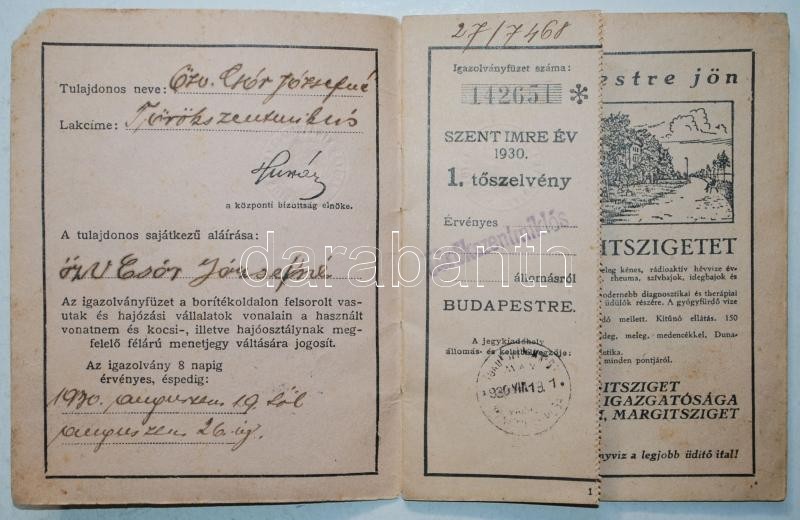 Tulajdonos neve: özv. Csór Józsefné
Lakcíme: Törökszentmiklós
a központi bizottság elnöke.
A tulajdonos sajátkezű aláírása:
özv Csór Józsefné
Az igazolványfüzet a borítékoldalon felsorolt vas-
utak és hajózási vállalatok vonalain a használt
vonatnem és kocsi-, illetve hajóosztálynak meg-
felelő félárú menetjegy váltására jogosít.
Az igazolvány 8 napig
érvényes, éspedig:
1930. augusztus 19től
augusztus 26.ig.
27/7468
Igazolványfüzet száma:
142651 *
SZENT IMRE ÉV
1930.
1. tőszelvény
Érvényes
Törökszentmiklós
állomásról
BUDAPESTRE.
A jegykiadóhely
állomás- és keletbélyegzője:
1
estre jön
ITSZIGETET
eleg kénes, rádioaktív hévvize év-
rheuma, szívbajok, idegbajok és
odernebb diagnosztikai és therápiai
üdülők részére. A gyógyfürdő vize
dó mellett. Kitünő ellátás. 150
deg, meleg, medencékkel, Duna-
etika.
minden pontjáról.
ITSZIGET
IGAZGATÓSÁGA
T, MARGITSZIGET
nyviz a legjobb üdítő ital!
darabanth